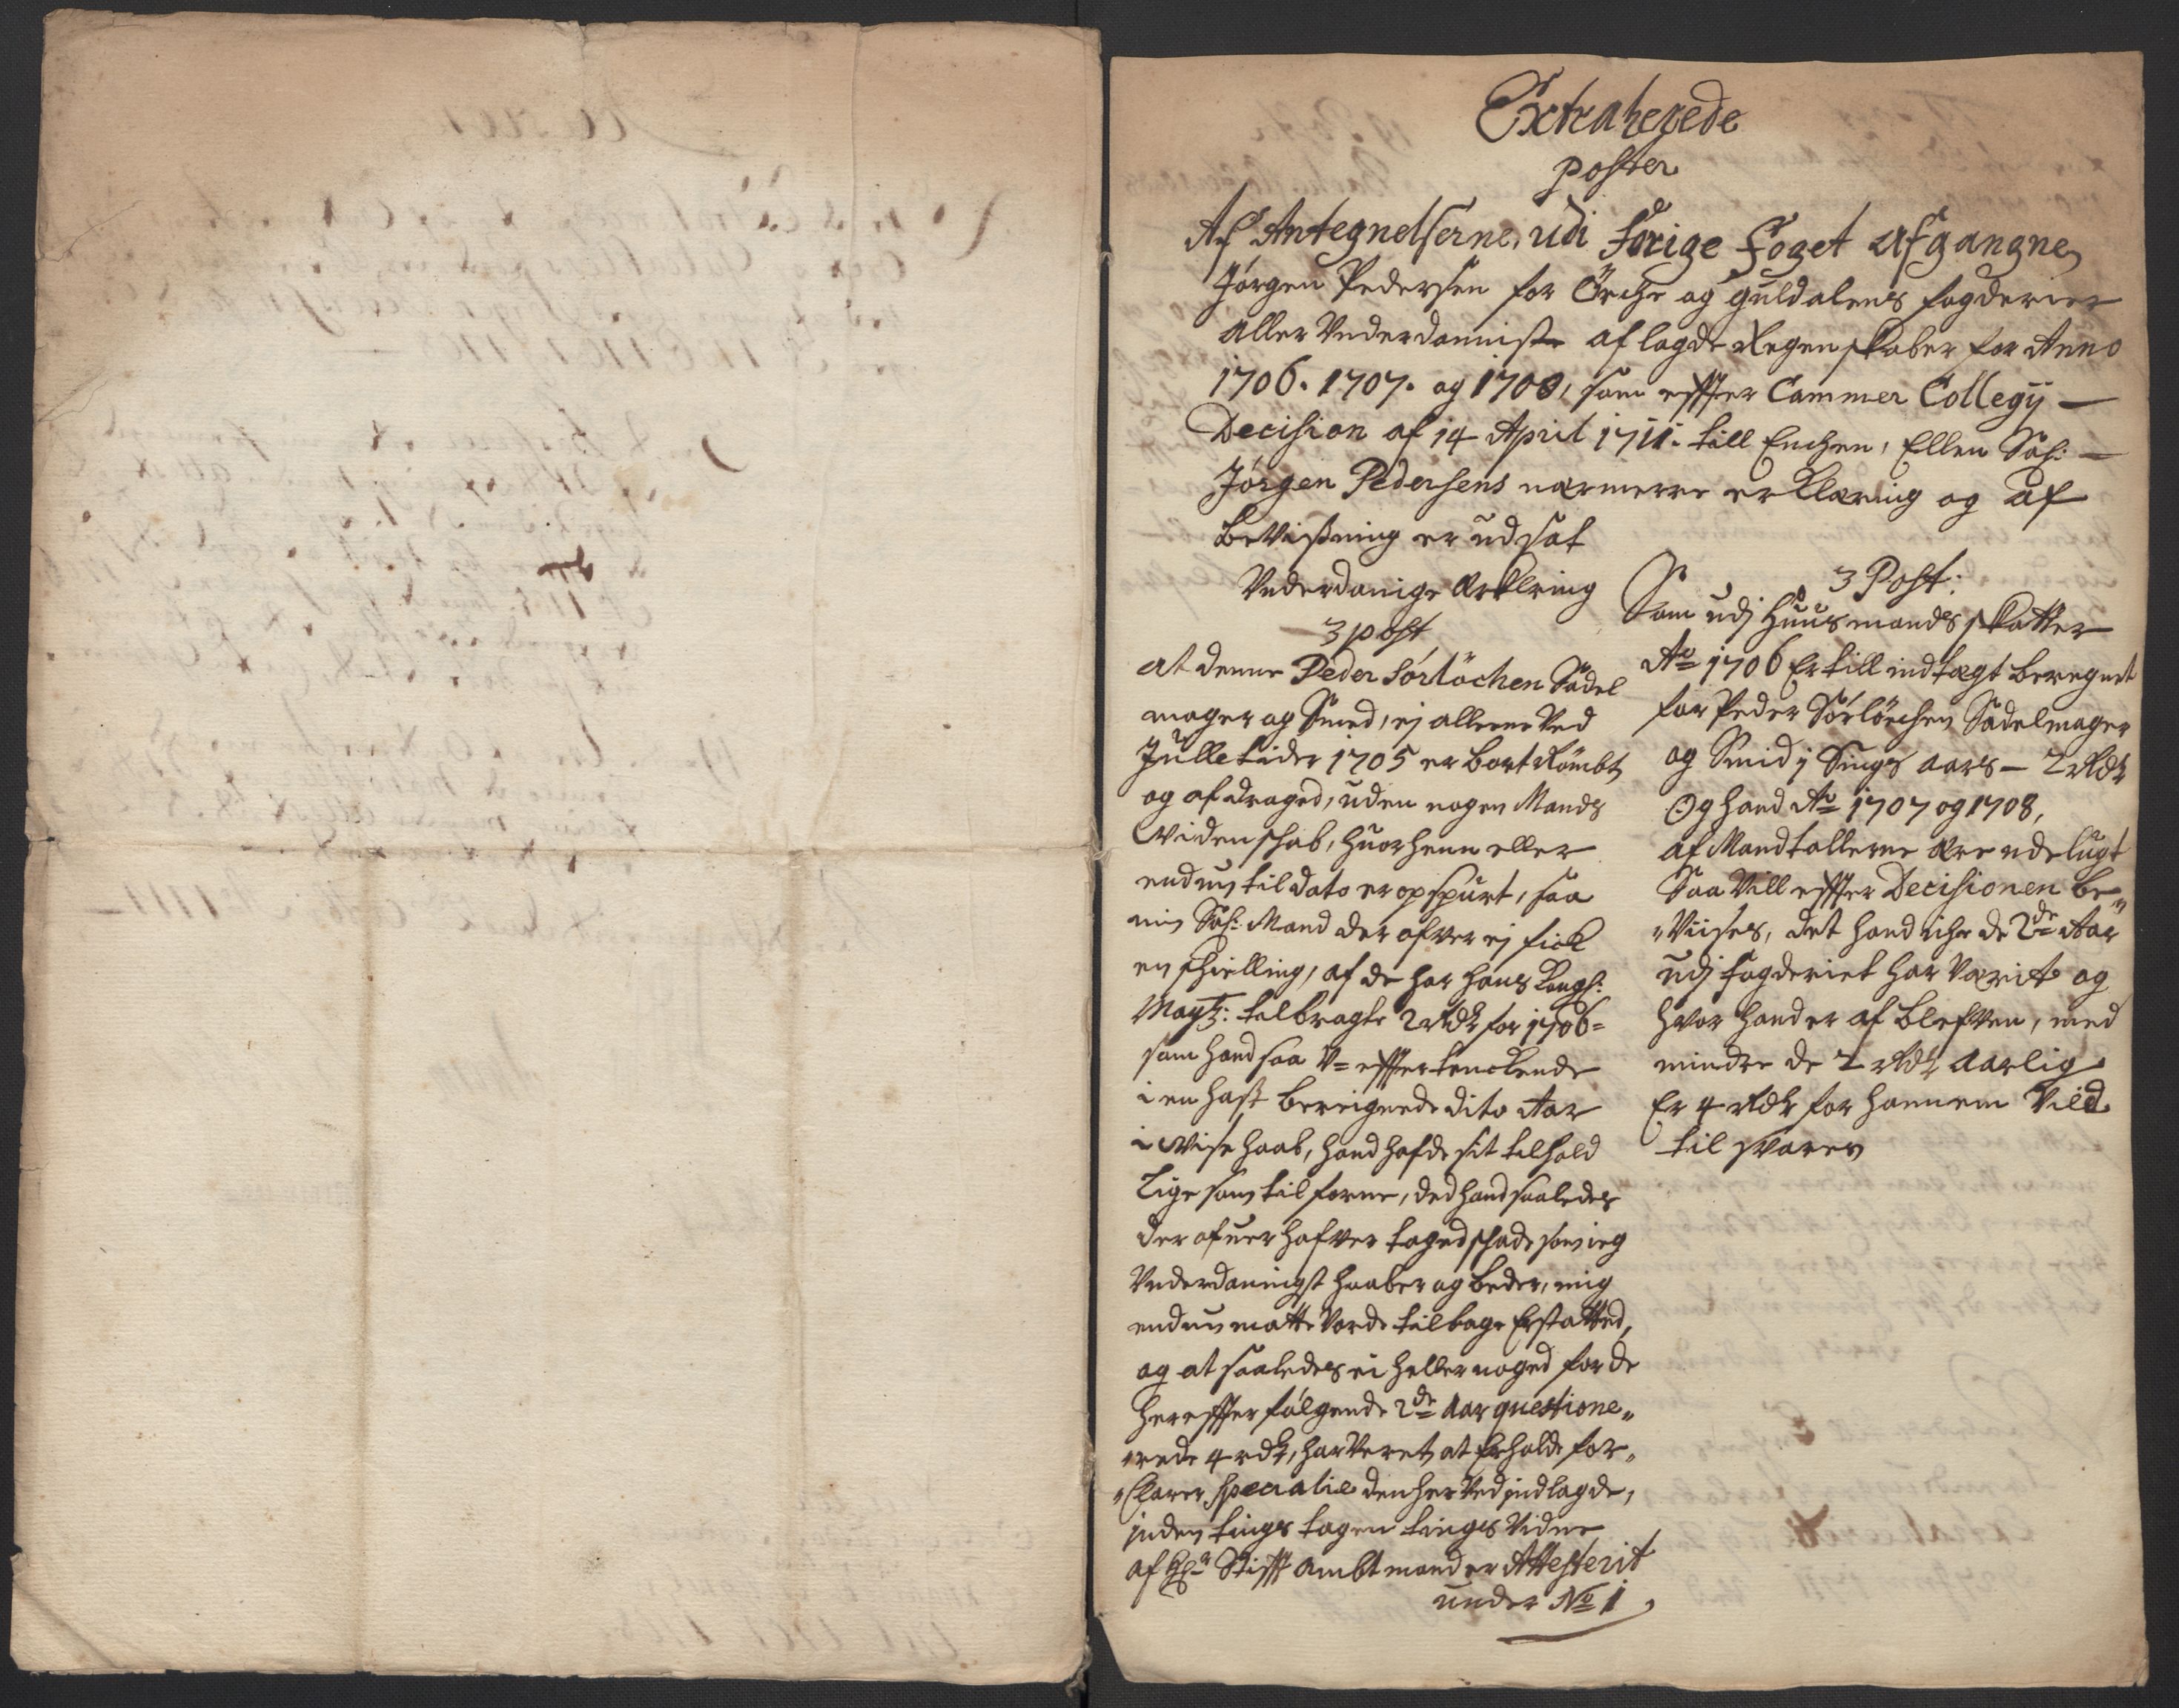 Extraherede
poster
Af Antegnelserne, udi forige foget afgangne
Jørgen Pedersen for Örche og guldalens fogderier
aller Underdannist aflagde Regenskaber for Anno
1706. 1707. og 1708, som effter Cammer Collegij
Decision af 14 April 1711. till Enchen, Ellen Sal:
Jörgen Pedersens nærmerre erklæring og af
beviisning er udsat
Underdanige Erklering
3 post
at denne Peder Sörlöchen Sadel
mager og Smed, ej alleene ved
Julletider 1705 er bortRömbt
og afdraged, uden nogen Mands
Videnschab, huorhenn eller
endnu til dato er opspurt, saa
min Sal: Mand der ofver ej fick
en schielling, af de har hans Kongl:
Maytz: tilbragte 2 Rdr for 1706
som hand saa U-effter tenckende
i en hast bereignede dito Aar
i Vise haab, hand hafde sit tilhold
Lige som tilforne, ded hand saaledes
der ofuer hafver taged schade som ieg
Underdaningst haaber og beder, mig
endnu motte vorde tilbage Erstatted,
og at saaledes ei heller noged for de
her effter følgende 2de Aar questione„
„rede 4 rdr, har veret at Erholde for„
„Clarer specialie den her ved indlagde,
inden tings tagen tings vidne
af Hr Stifft ambtmand er Attesterit
under No 1
3 Post:
Som udj Huusmands skatter
Ao 1706 Er till indtægt beregnet
for Peder Sörlöchen Sadelmager
og Smid j Sings aars – 2 Rdr
Og hand Ao 1707 og 1708,
af Mandtallerne ere udelugt
Saa Vill effter Decisionen be„
„Viises, det hand iche de 2de Aar
udj fogderiet har Værit og
hvor hand er af blefven, med
mindre de 2 Rdr aarlig
Er 4 Rdr for hannem Vild
til svares